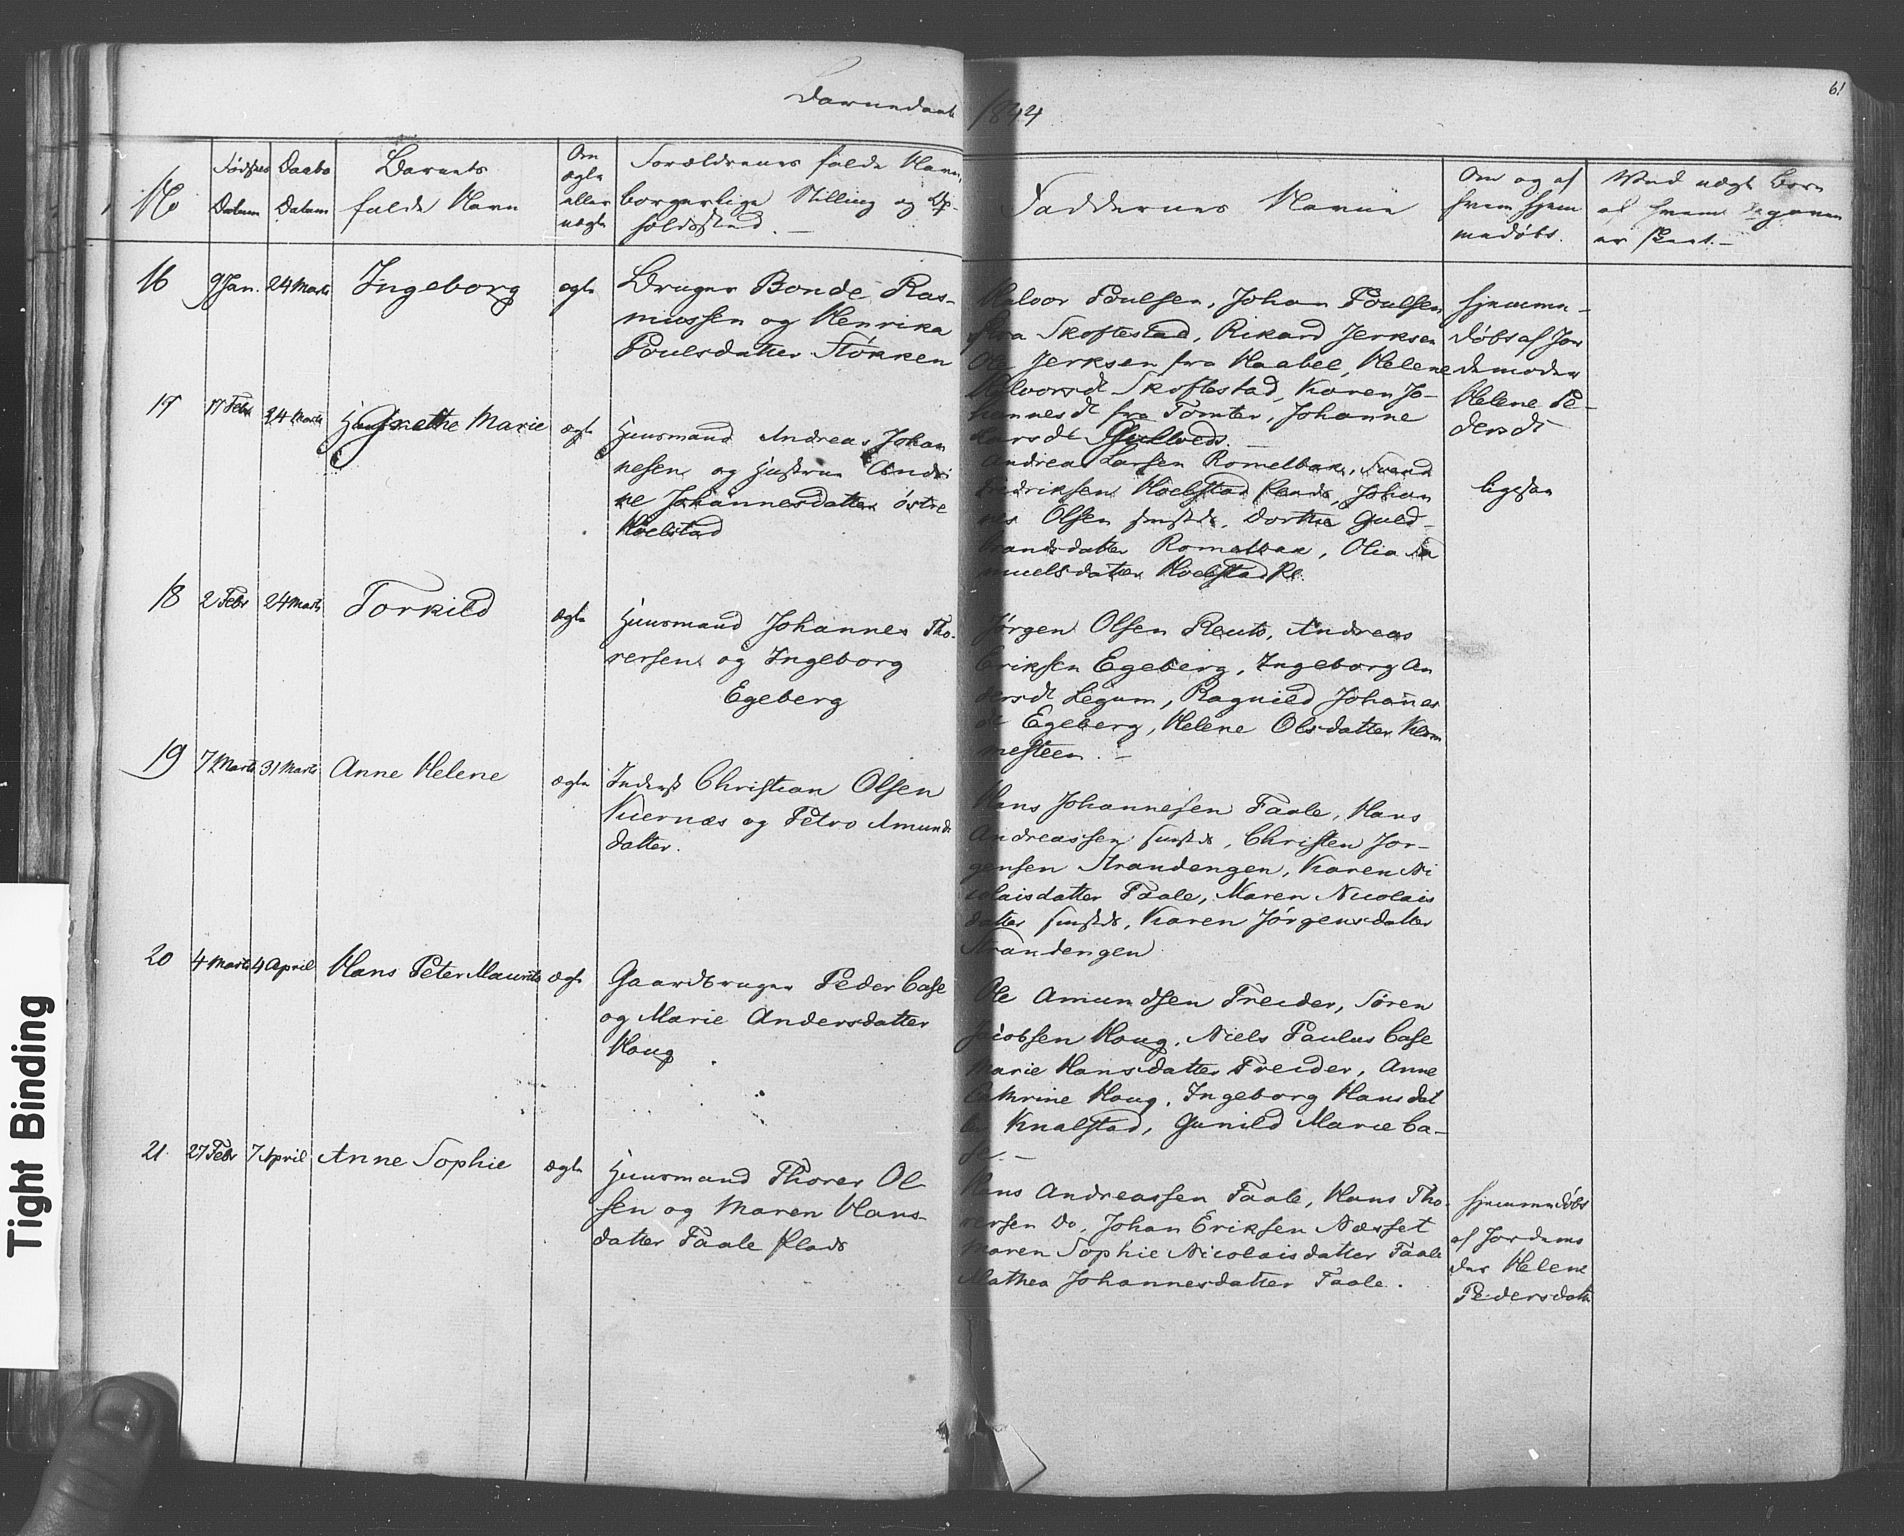 Barnedaab 1844
61
No
Fødsels Datum
Daabs Datum
Barnets
fulde Navn
Om ægte eller uægte
Forældrenes fulde Navn,
borgerlige Stilling og Op-
holdssted.
Faddernes Navne
Om og af
hvem hjem
medøbt.
Ved uægte Børn
af hvem
er skeet.
16 9 Jan. 24 Marts Ingeborg ægte
Bruger Bonde Ras-
mussen og Henrika
Poulsdatter Støkken
Halvor Poulsen, Johan Poulsen
fra Skoftestad, Rikard Jerksen
Ole Jerksen fra Haabel, Helene
Halvorsdt Skoftestad, Karen Jo-
hannesdt fra Tomter, Johanne
Larsdt
hjemme-
døbt af Jor
demoder
Helene Pe-
dersdt
17 17 Febr 24 Marts Grethe Marie ægte
Huusmand Andreas Johan
nesen og Hustrue Andri
ne Johannesdatter østre
Koelstad
Andreas Larsen Romelbak, Svend
Fredriksen Koelstad Plads, Johan
nes Olsen smstds, Dorthe Guld-
brandsdatter Romelbak, Olia Sa
muelsdatter Koelstad Pl.
ligesaa
18 2 Febr 24 Marts Torkild ægte
Huusmand Johannes Tho-
rersen og Ingeborg
Egeberg
Jørgen Olsen Reuts, Andreas
Eriksen Egeberg, Ingeborg An
dersdt Legum, Ragnild Johannes
dt Egeberg, Helene Olsdatter Klom
mesteen.
19 7 Marts 31 Marts Anne Helene ægte
Inderst Christian Olsen
Kiernæs og Petro Amunds
datter.
Hans Johannesen Faale, Hans
Andreassen smstds, Christen Jør-
gensen Strandengen, Karen Ni
colaisdatter Faale, Maren Nicolais
datter smstds, Karen Jørgensdatter
Strandengen
20 4 Marts 4 April Hans Peter Maurits ægte
Gaardbruger Peder Case
og Marie Andersdatter
Houg
Ole Amundsen Freider, Søren
Jacobsen Houg, Niels Paulus Case
Marie Hansdatter Freider, Anne
Cathrine Houg, Ingeborg Hansdat
ter Knalstad, Gunild Marie Ca-
se.
21 27 Febr 7 April Anne Sophie ægte
Huusmand Thorer Ol
sen og Maren Hans-
datter Faale Plads
Hans Andreassen Faale, Hans Tho-
rersen Do, Johan Eriksen Næsset
Maren Sophie Nicolaisdatter Faale
Mathea Johannesdatter Faale.
hjemmedøbt
af Jordemo
der Helene
Pedersdatter
Tight Binding